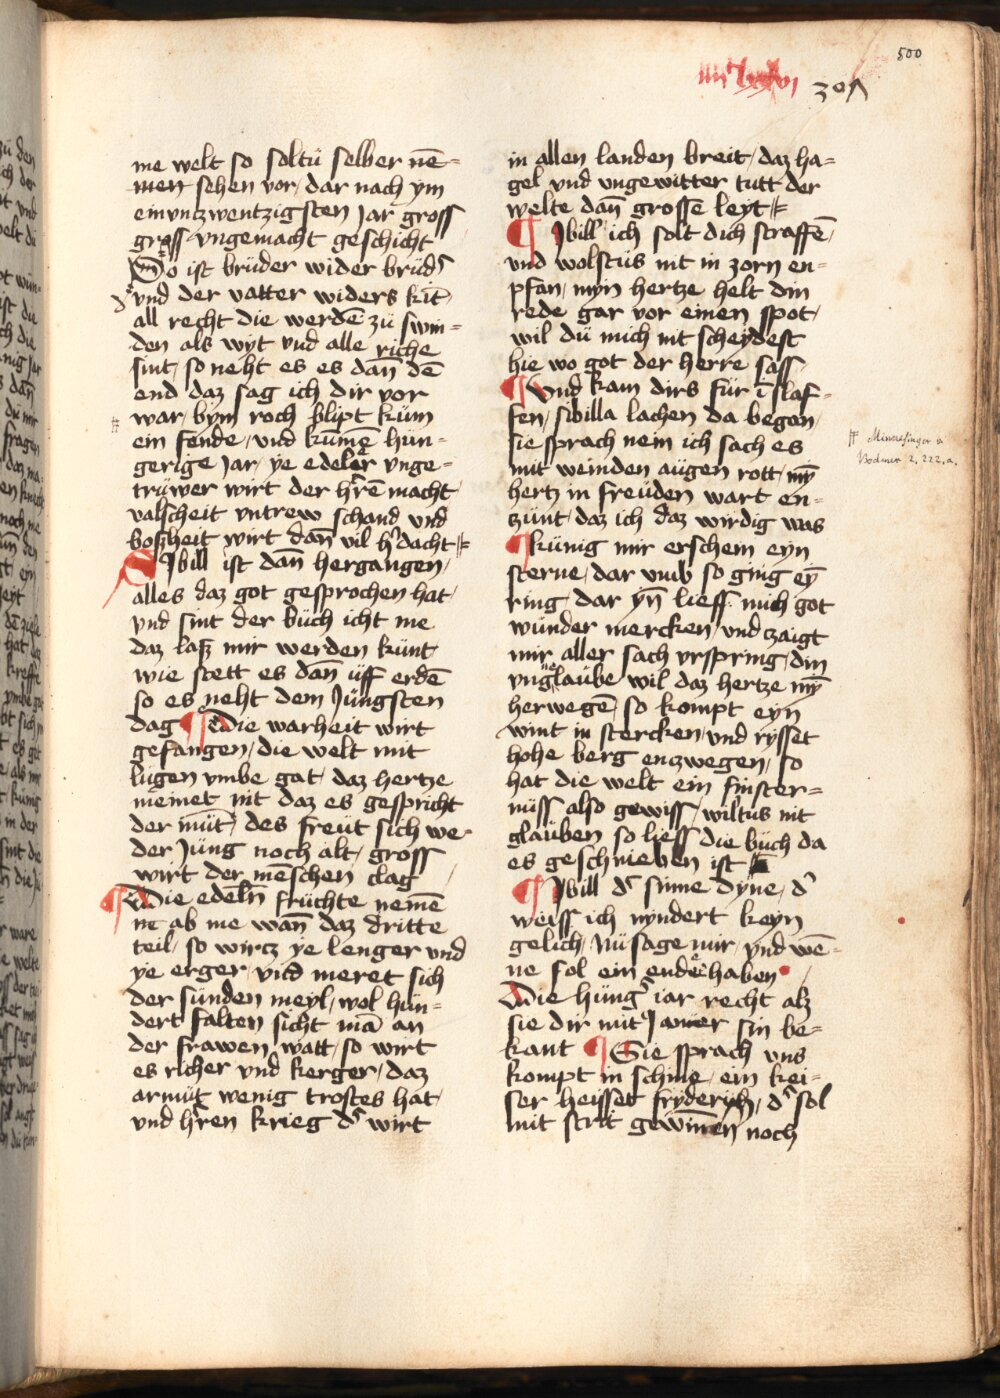 500
307
me welt so soltu selber nē=
men sehen vor / dar nach ym
einvnzwentzigsten Jar gross
gross vngemacht geschicht
So ist brüder wider brüdʼ
vnd der vatter widers kīt
all recht die werdē zü swin=
den als wyt vnd alle riche
sint / so neht es es dañ dē
end daz sag ich dir vor
war / bym roch blipt küm
ein fende / vnd kümē hün=
gerige Jar / ye edeler vnge=
trüwer wirt der hʼrē macht
valscheit vntrew schand vnd
boßheit wirt dañ vil hʼdacht
Sibill ist dañ hergangen /
alles daz got gesprochen hat /
vnd sint der büch icht me
daz laß mir werden künt
wie stett es dañ üff erdē
so es neht dem Jüngsten
dag ¶ Die warheit wirt
gefangen / die welt mit
lugen vmbe gat / daz hertze
meinet nit daz es gespricht
der müt / des freüt sich we=
der Jüng noch alt / gross
wirt der meschen clag
¶ Die edeln früchte nemē
ab me wañ daz dritte
teil / so wircz ye lenger vnd
ye erger / vnd meret sich
der sünden meyl / wol hün=
dert falten sicht mā an
der frawen watt / so wirt
es richer vnd kerger / daz
armüt wenig trostes hat /
vnd hʼren krieg dʼ wirt
in allen landen breit / daz ha=
gel vnd vngewitter tutt der
welte dañ grossē leyt
¶ Sibill ich solt dich straffē /
vnd wolstus nit in zorn en=
pfan / myn hertze helt din
rede gar vor einen spot /
wil dü mich nit scheydest
hie wo got der herre sass
¶ Vnd kam dirs für ī slaf=
fen / sibilla lachen da began /
sie sprach nein ich sach es
mit weinden augen rott / mȳ
hertz in freüden wart en=
zünt / daz ich daz wirdig was
¶ künig mir erschein eyn
sterne / dar vmb so ging eȳ
ring / dar yñ lieff mich got
wünder mercken / vnd zaigt
mir aller sach vrspring / din
vnglaübe wil daz hertze mȳ
herwegē / so kompt eyn
wint in stercken / vnd rysset
hohe berg enzwegen / so
hat die welt ein finster=
nüss also gewiss / wiltus nit
glaüben so liess die büch da
es geschrieben ist
¶ Sibill dʼ sinne dyne / dʼ
weiss ich nyndert keyn
gelich / Nü sage mir / vnd wē=
ne sol ein ende haben
Die hüngʼ iar recht alz
sie dir mit Jamer sin be=
kant ¶ Sie sprach vns
kompt in schine / ein kei=
ser heisset fryderich / dʼ sol
mit strit gewinnen noch
Minnesinger v.
Bodmer 2, 222, a.